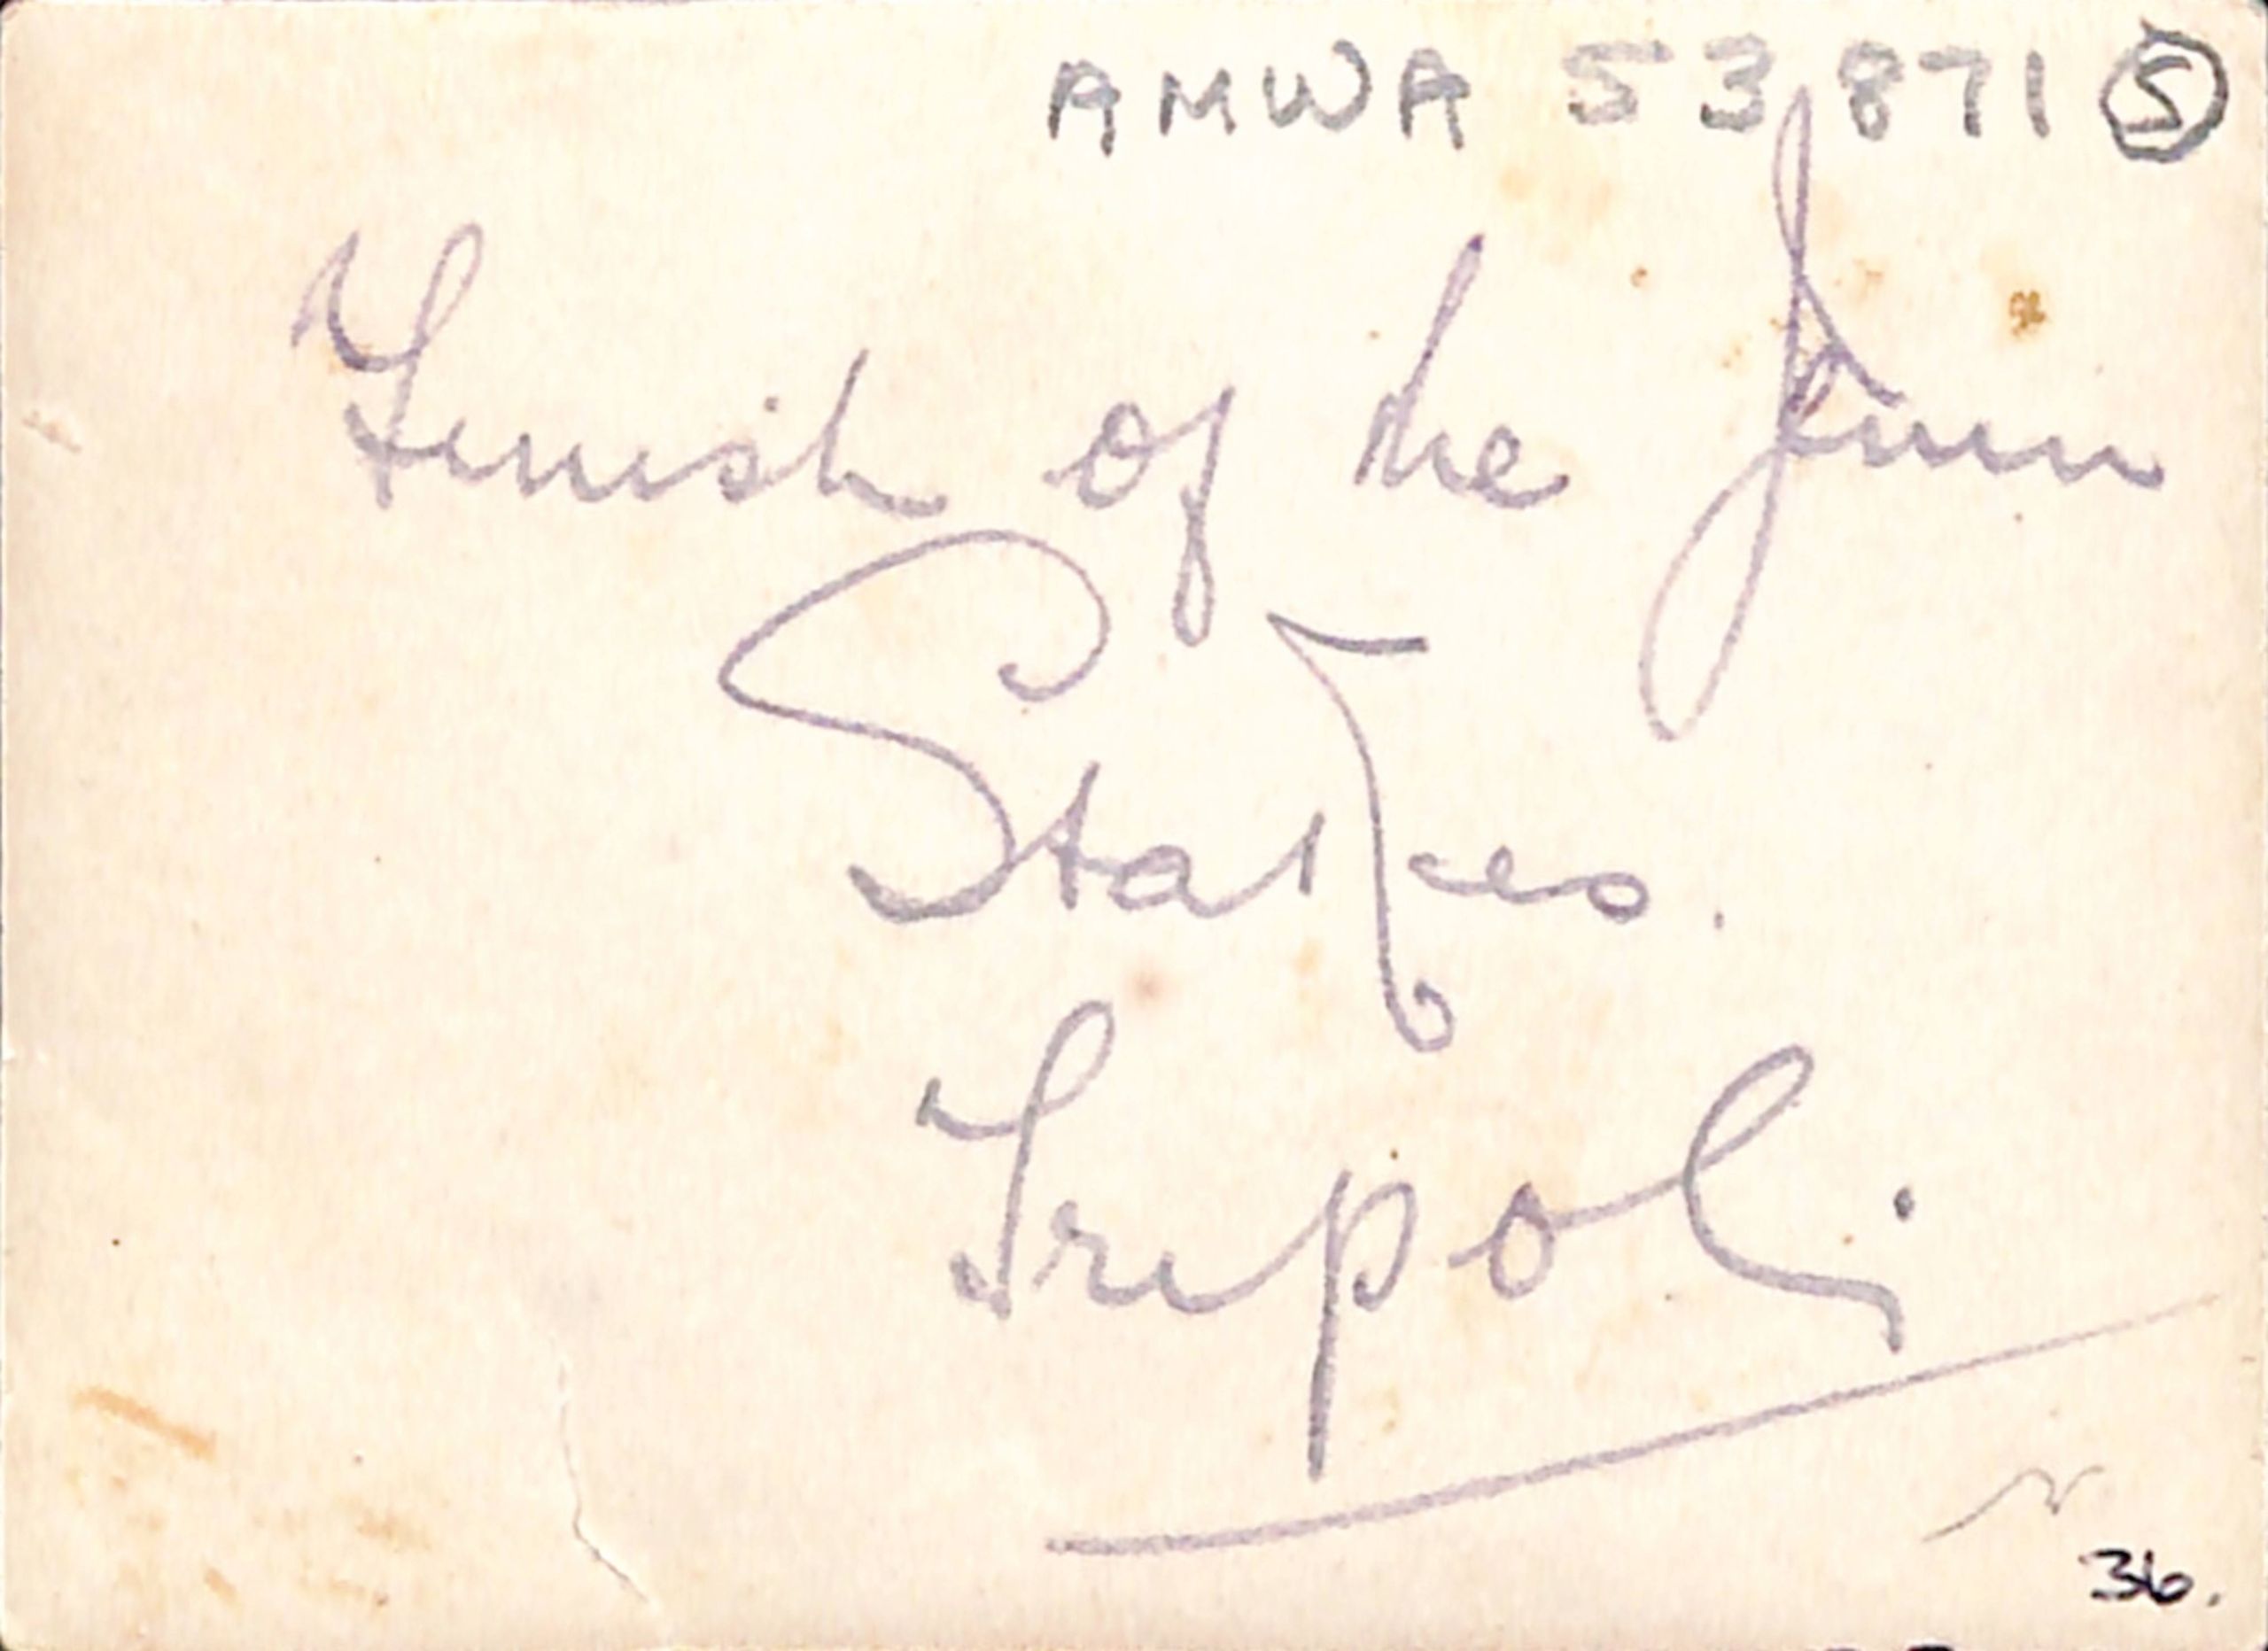 AMWA 53871 (5)
Finish of the
Stakes.
Tripoli.
36.